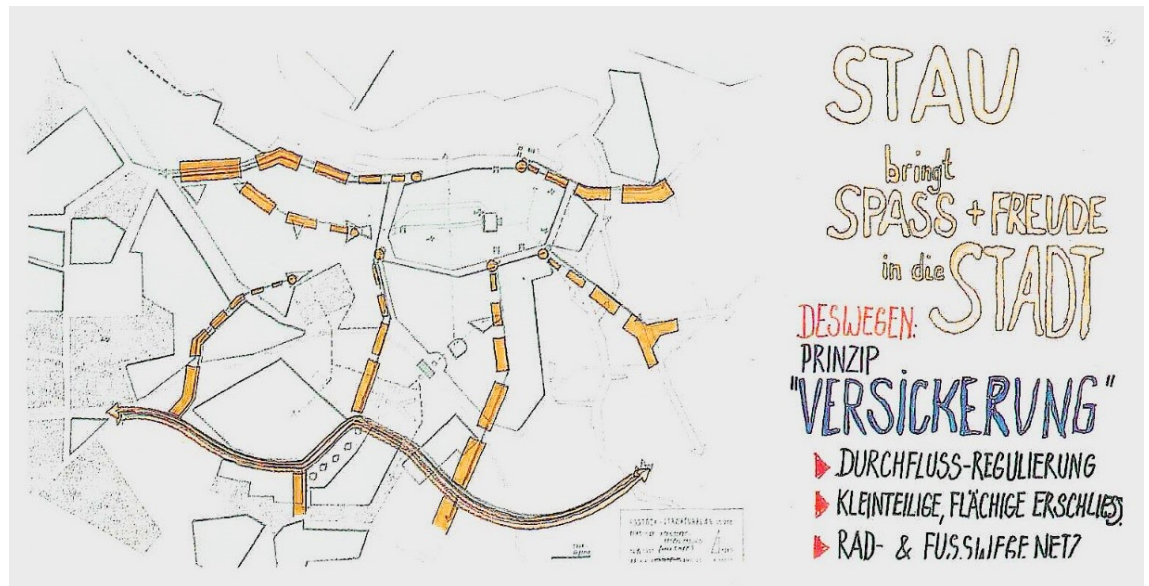 STAU
bringt
SPASS + FREUDE
in die STADT
DESWEGEN:
PRINZIP
"VERSICKERUNG"
DURCHFLUSS-REGULIERUNG
KLEINTEILIGE, FLÄCHIGE ERSCHLIESS.
RAD- & FUSSWEGE NETZ